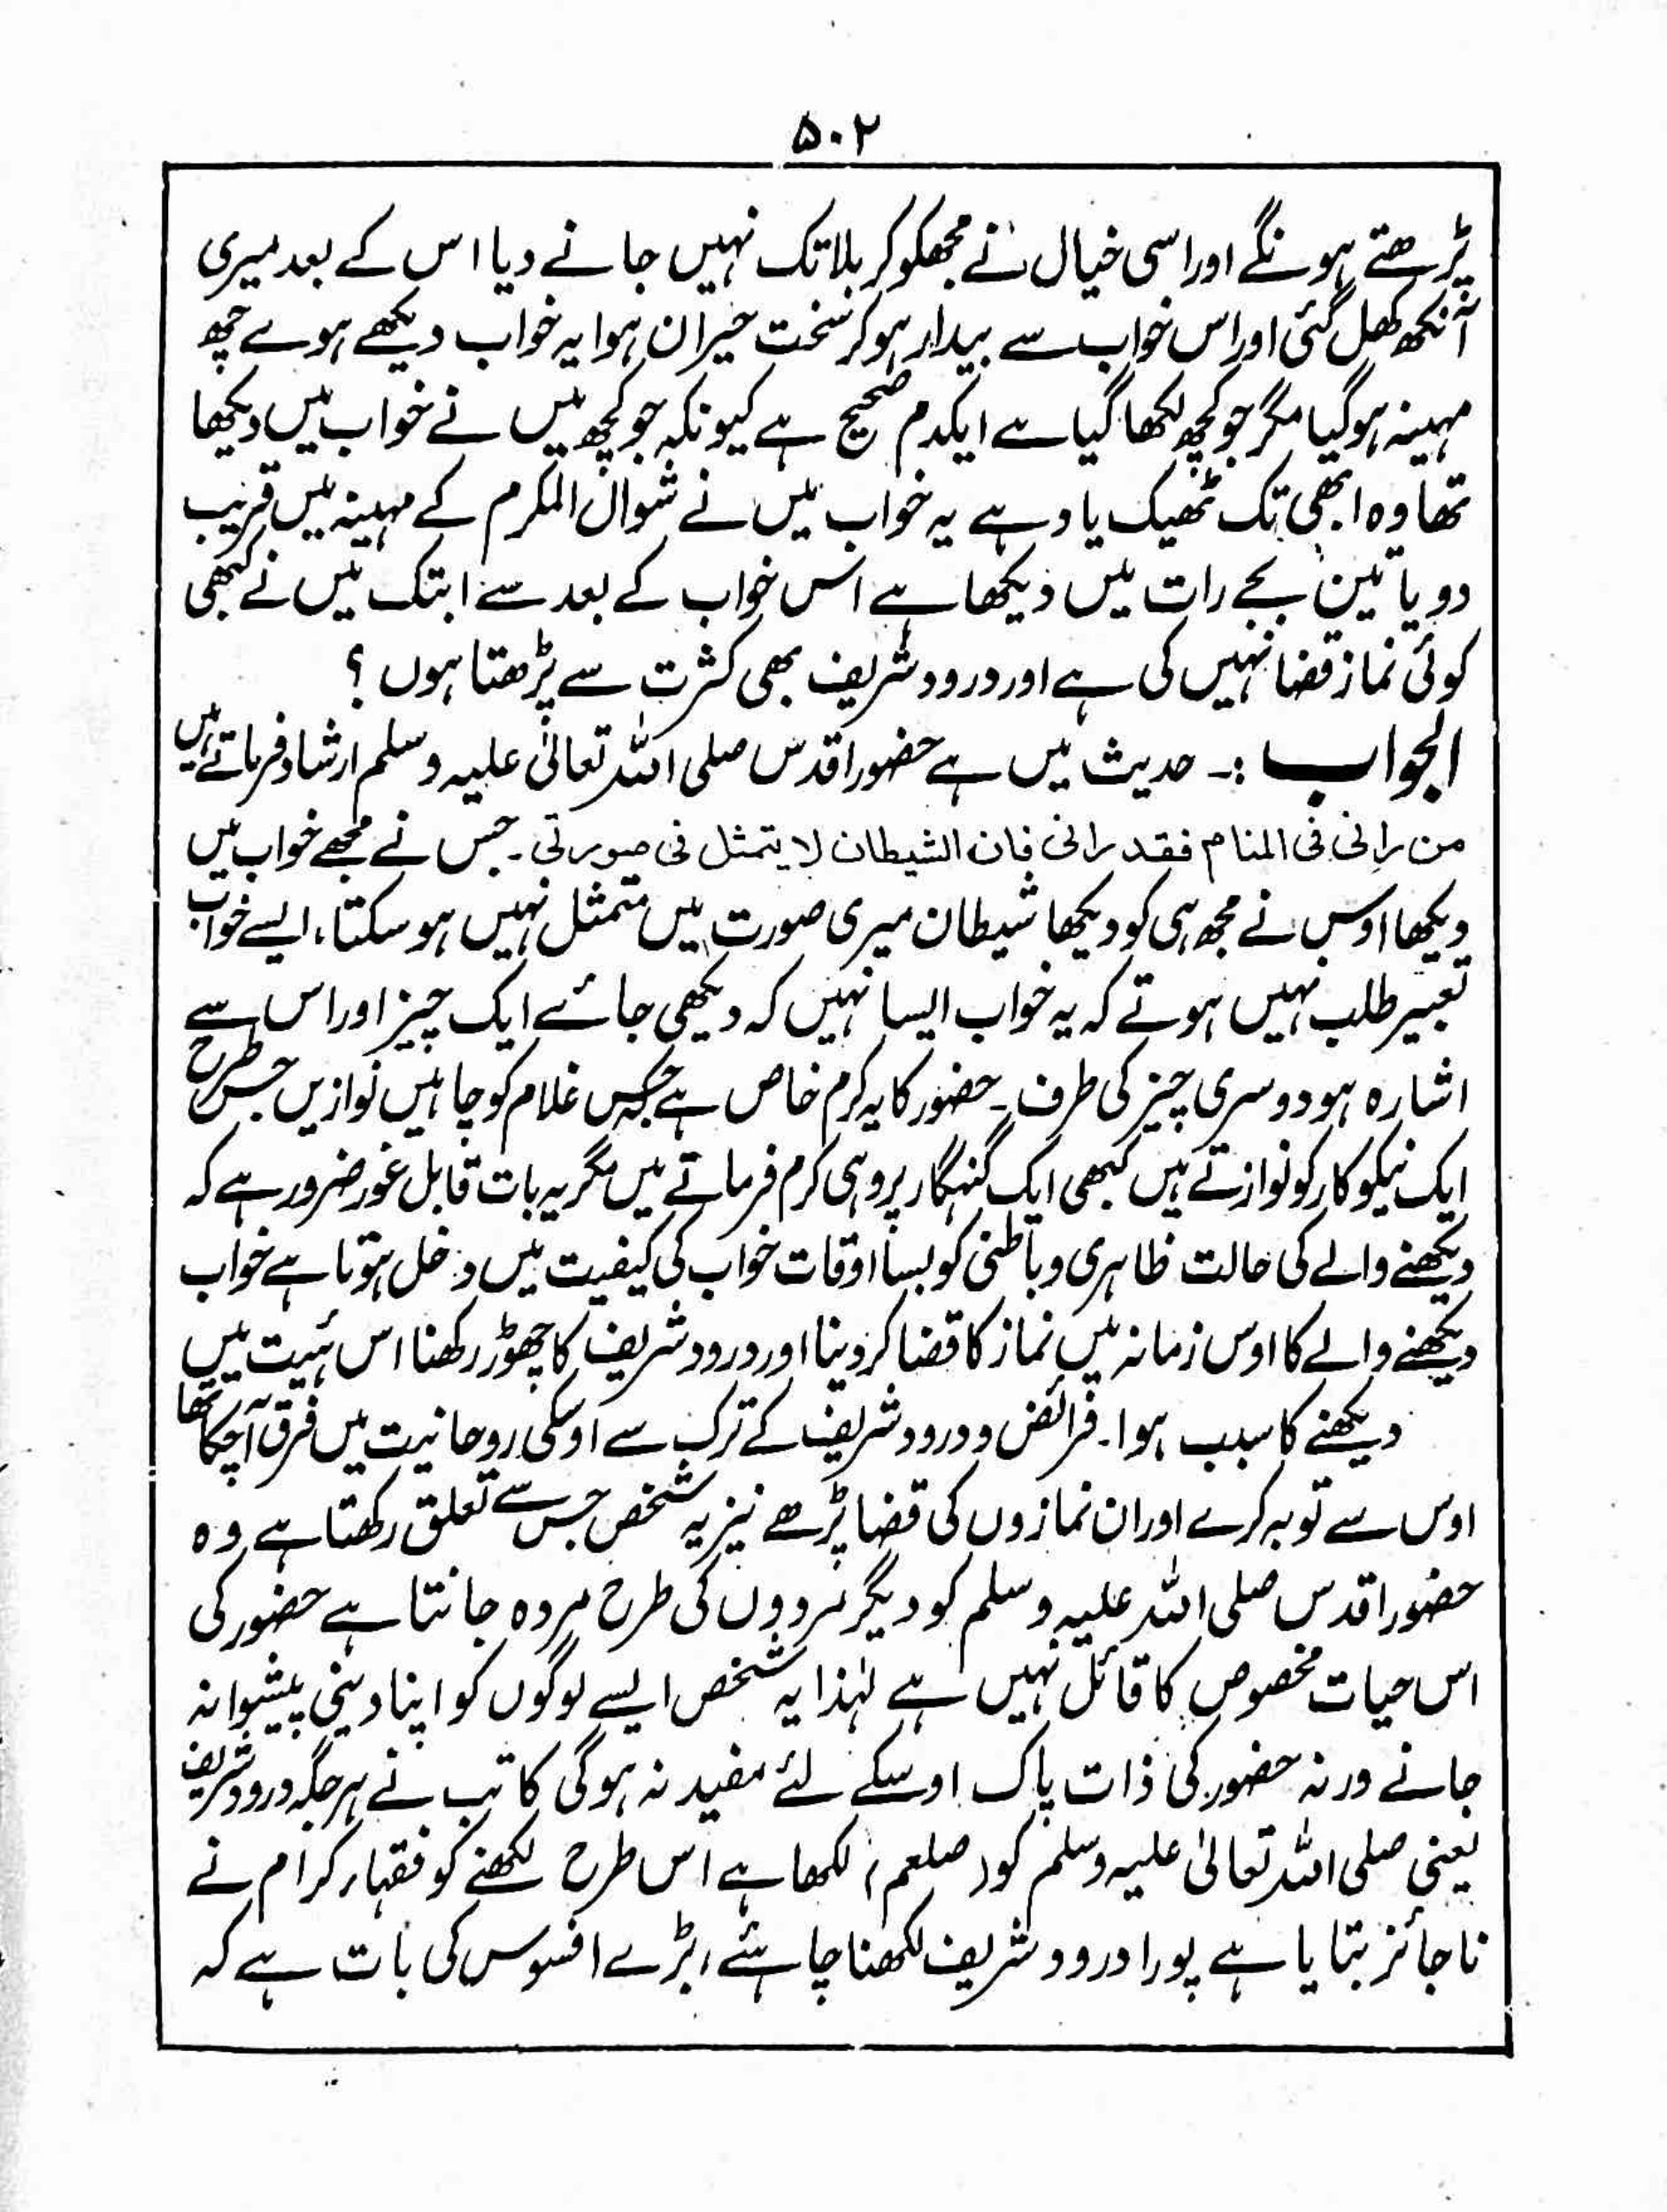 ۵۰۲
پڑھتے ہونگے اور اسی خیال نے مجھکو کربلا تک نہیں جانے دیا اس کے بعد میری
آنکھ کھل گئی اور اس خواب سے بیدار ہوکر سخت حیران ہوا یہ خواب دیکھے ہوے چھ
مہینہ ہوگیا مگر جو کچھ لکھا گیا سے ایکدم صحیح ہے کیونکہ جو کچھ میں نے خواب میں دیکھا
تھا وہ ابھی تک ٹھیک یاد ہے یہ خواب میں نے شوال المکرم کے مہینہ میں قریب
دو یا تین بجے رات میں دیکھا ہے اس خواب کے بعد سے ابتک میں نے کبھی
کوئی نماز قضا نہیں کی ہے اور درود شریف بھی کثرت سے پڑھتا ہوں ؟
الجواب :۔ حدیث میں ہے حضور اقدس صلی اللہ تعالیٰ علیہ وسلم ارشاد فرماتے ہیں
من رانی فی المنام فقد رانی فان الشیطان لا یتمثل فی صورتی ۔ جس نے مجھے خواب میں
دیکھا اوس نے مجھ ہی کو دیکھا شیطان میری صورت میں متمثل نہیں ہو سکتا، ایسے خواب
تعبیر طلب نہیں ہوتے کہ یہ خواب ایسا نہیں کہ دیکھی جائے ایک چیز اور اس سے
اشارہ ہو دوسری چیز کی طرف ۔ حضور کا یہ کرم خاص ہے جس غلام کو چاہیں نوازیں جس طرح
ایک نیکو کار کو نوازتے ہیں کبھی ایک گنہگار پر وہی کرم فرماتے ہیں مگر یہ بات قابل غور ضرور ہے کہ
دیکھنے والے کی حالت ظاہری و باطنی کو بسا اوقات خواب کی کیفیت میں دخل ہوتا ہے خواب
دیکھنے والے کا اوس زمانہ میں نماز کا قضا کر دینا اور درود شریف کا چھوڑ رکھنا اس ہیئت میں
دیکھنے کا سبب ہوا ۔ فرائض و درود شریف کے ترک سے اوسکی روحانیت میں فرق آچکا تھا
اوس سے توبہ کرے اور ان نمازوں کی قضا پڑھے نیز یہ شخص جس سے تعلق رکھتا ہے وہ
حضور اقدس صلی اللہ علیہ وسلم کو دیگر مردوں کی طرح مردہ جانتا ہے حضور کی
اس حیات مخصوص کا قائل نہیں ہے لہٰذا یہ شخص ایسے لوگوں کو اپنا دینی پیشوا نہ
جانے ورنہ حضور کی ذات پاک اوسکے لئے مفید نہ ہوگی کاتب نے ہر جگہ درود شریف
یعنی صلی اللہ تعالیٰ علیہ وسلم کو (صلعم) لکھا ہے اس طرح لکھنے کو فقہاء کرام نے
ناجائز بتایا ہے پورا درود شریف لکھنا چاہئے، بڑے افسوس کی بات ہے کہ